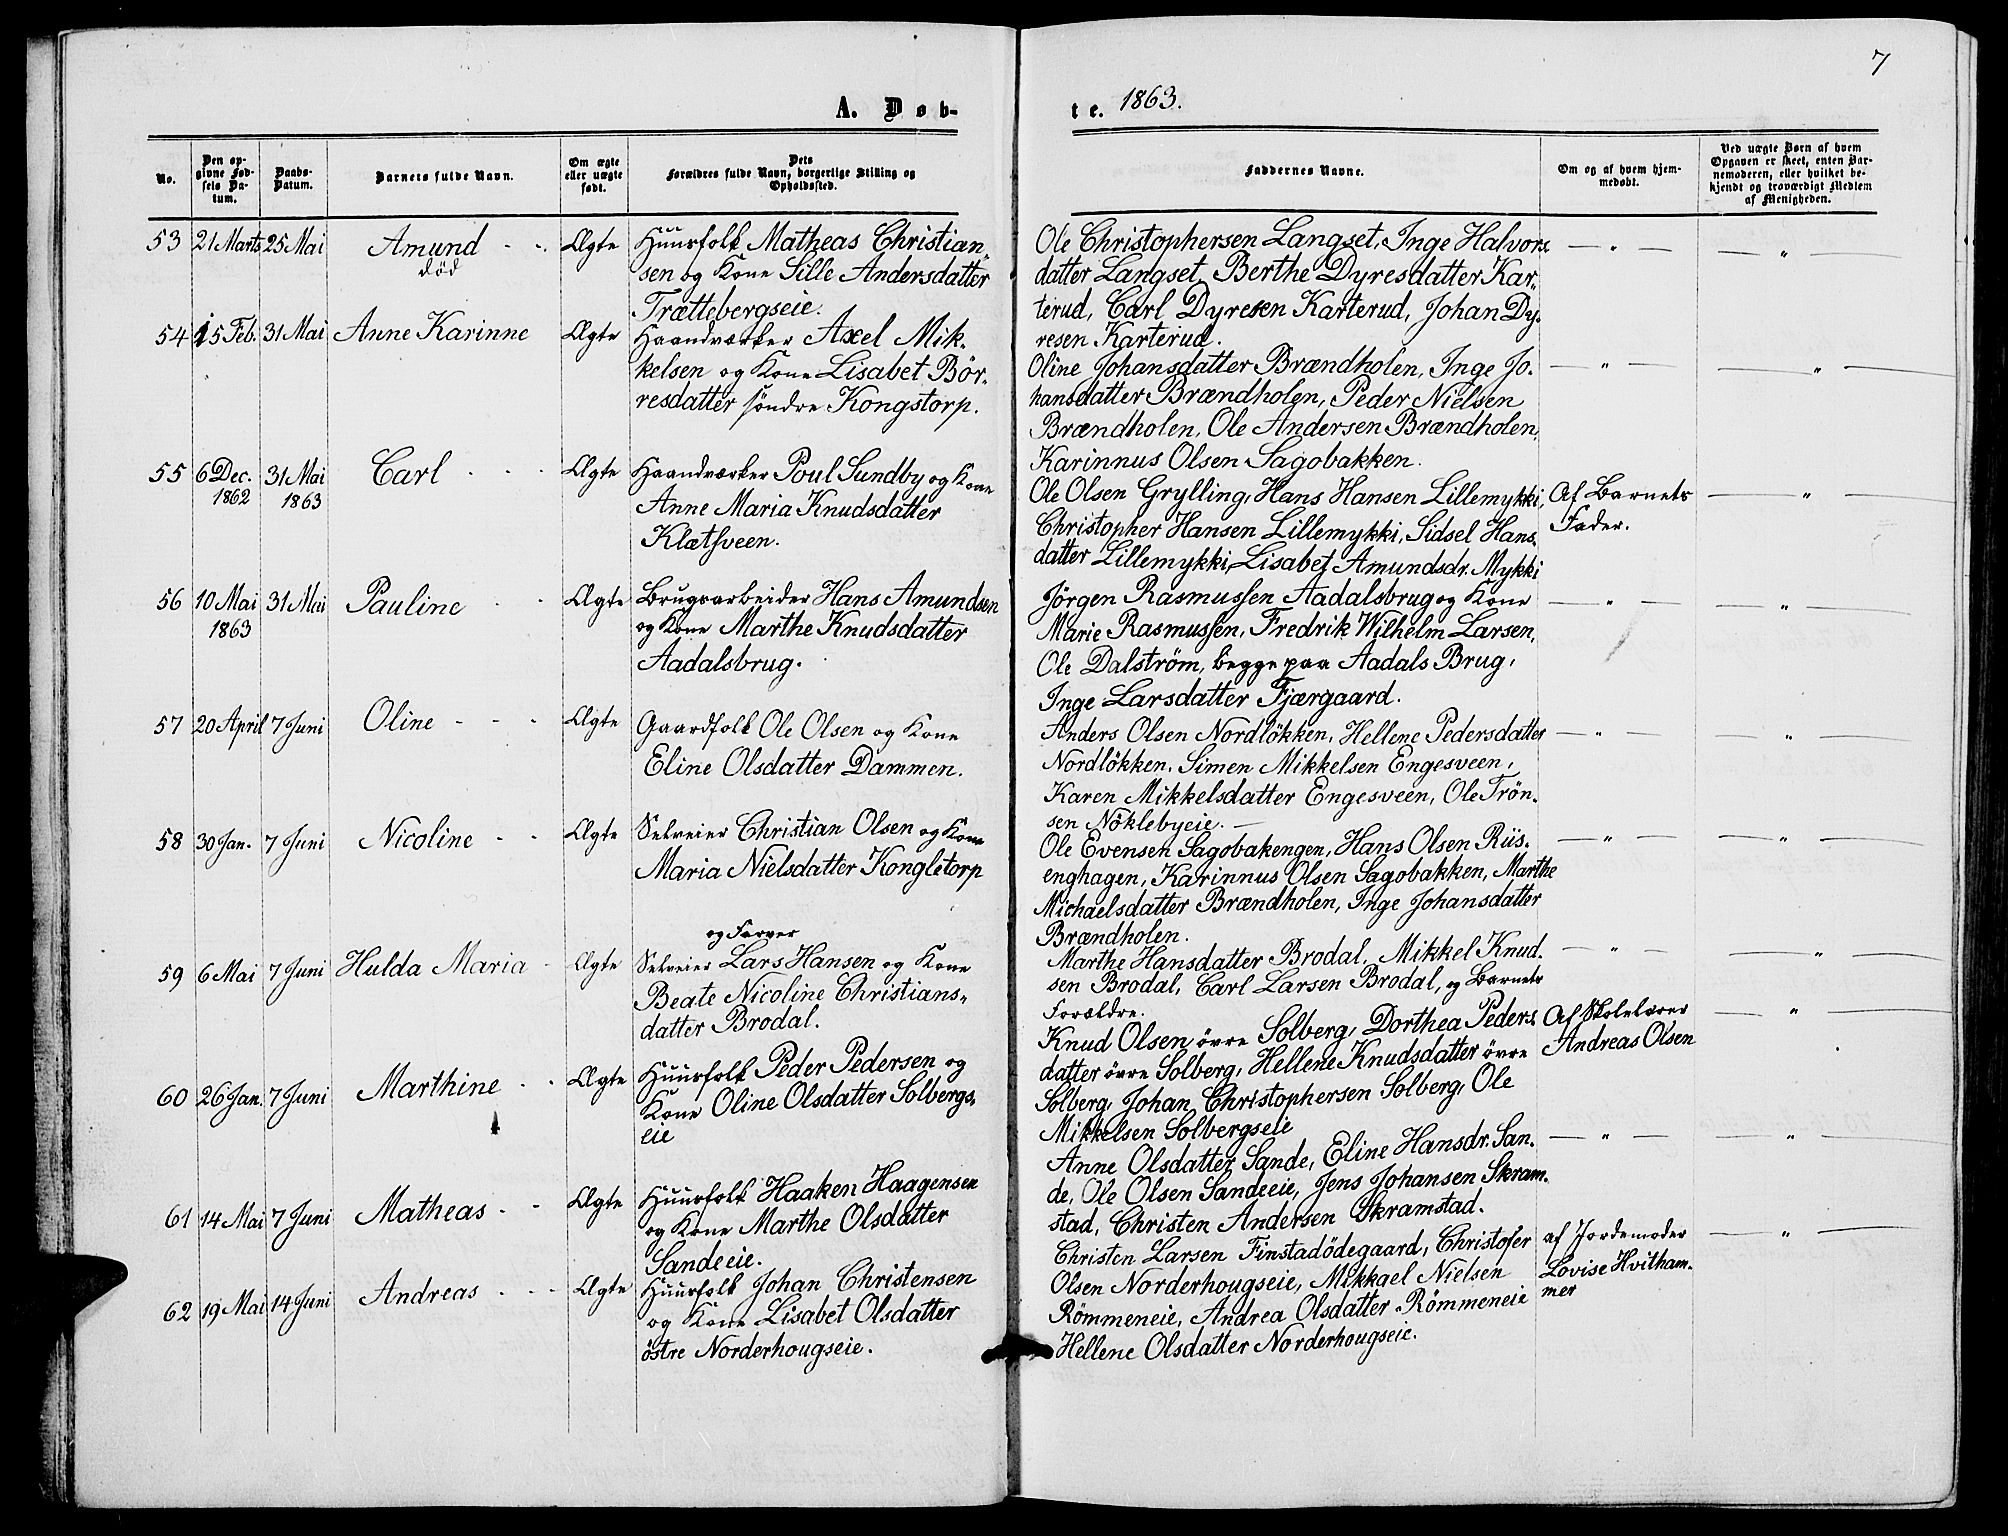 7
A. Døb-
te. 1863.
No.
Den op-
givne Fød-
sels Da-
tum.
Daabs-
Datum.
Barnets fulde Navn.
Om ægte
eller uægte
født.
Dets
Forældres fulde Navn, borgerlige Stilling og
Opholdssted.
Faddernes Navne.
Om og af hvem hjem-
medøbt.
Ved uægte Børn af hvem
Opgaven er skeet, enten Bar-
nemoderen, eller hvilket be-
kjendt og troværdigt Medlem
af Menigheden.
53 21 Marts 25 Mai Amund - - Ægte Huusfolk Matheas Christian-
død
sen og Kone Sille Andersdatter
Trættebergseie.
Ole Christophersen Langset, Inge Halvors- — " — — " —
datter Langset, Berthe Dyresdatter Kar-
terud, Carl Dyresen Karterud, Johan Dy-
resen Karterud.
54 15 Feb. 31 Mai Anne Karinne Ægte Haandværker Axel Mik-
kelsen og Kone Lisabet Bör-
resdatter söndre Kongstorp.
Oline Johansdatter Brændholen, Inge Jo- — " — — " —
hansdatter Brændholen, Peder Nielsen
Brændholen, Ole Andersen Brændholen,
Karinnus Olsen Sagobakken.
55 6 Dec. 31 Mai Carl - - - Ægte Haandværker Poul Sundby og Kone
1862 1863
Anne Maria Knudsdatter
Klætsveen.
Ole Olsen Grylling, Hans Hansen Lillemykki, Af Barnets — " —
Christopher Hansen Lillemykki, Sidsel Hans- Fader.
datter Lillemykki, Lisabet Amundsdr. Mykki
56 10 Mai 31 Mai Pauline - - Ægte Brugsarbeider Hans Amundsen
1863
og Kone Marthe Knudsdatter
Aadalsbrug.
Jörgen Rasmussen Aadalsbrug og Kone — " — — " —
Marie Rasmussen, Fredrik Wilhelm Larsen,
Ole Dalström, begge paa Aadals Brug,
Inge Larsdatter Fjærgaard.
57 20 April 7 Juni Oline - - - Ægte Gaardfolk Ole Olsen og Kone
Eline Olsdatter Dammen.
Anders Olsen Nordlökken, Hellene Pedersdatter — " — — " —
Nordlökken, Simen Mikkelsen Engesveen,
Karen Mikkelsdatter Engesveen, Ole Trön-
sen Nöklebyeie. —
58 30 Jan. 7 Juni Nicoline - - Ægte Selveier Christian Olsen og Kone
Maria Nielsdatter Kongletorp
Ole Evensen Sagobakengen, Hans Olsen Riis- — " — — " —
enghagen, Karinnus Olsen Sagobakken, Marthe
Michaelsdatter Brændholen, Inge Johansdatter
Brændholen.
og Farver
59 6 Mai 7 Juni Hulda Maria - Ægte Selveier Lars Hansen og Kone
Beate Nicoline Christians-
datter Brodal.
Marthe Hansdatter Brodal, Mikkel Knud- — " — — " —
sen Brodal, Carl Larsen Brodal, og Barnets
Forældre.
60 26 Jan. 7 Juni Marthine - - Ægte Huusfolk Peder Pedersen og
Kone Oline Olsdatter Solbergs-
eie
Knud Olsen övre Solberg, Dorthea Peders- Af Skolelærer — " —
datter övre Solberg, Hellene Knudsdatter övre Andreas Olsen
Solberg, Johan Christophersen Solberg, Ole
Mikkelsen Solbergseie
61 14 Mai 7 Juni Matheas - - Ægte Huusfolk Haaken Haagensen
og Kone Marthe Olsdatter
Sandeeie.
Anne Olsdatter Sande, Eline Hansdr. San- — " — — " —
de, Ole Olsen Sandeeie, Jens Johansen Skram-
stad, Christen Andersen Skramstad.
62 19 Mai 14 Juni Andreas - - - Ægte Huusfolk Johan Christensen
og Kone Lisabet Olsdatter
östre Norderhougseie.
Christen Larsen Finstadödegaard, Christofer af Jordemoder — " —
Olsen Norderhougseie, Mikkael Nielsen Lovise Hvitham-
Römmeneie, Andrea Olsdatter Römmeneie mer
Hellene Olsdatter Norderhougseie.